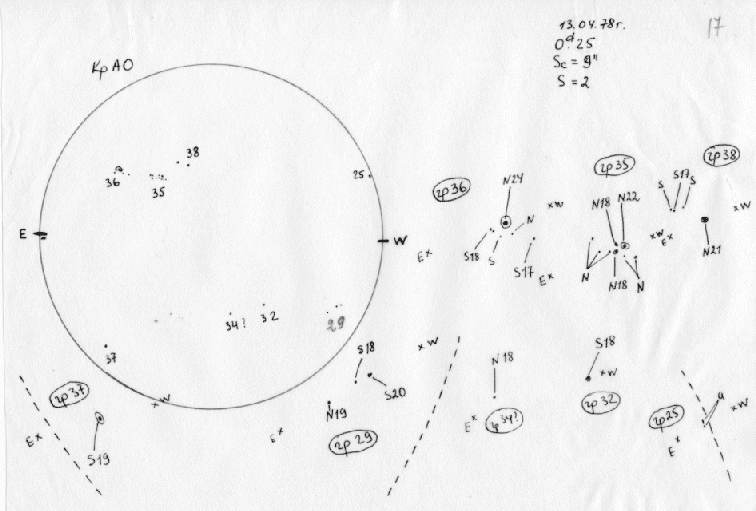 13.04.78г.
17
0ᵈ.25
Sc = 9"
S = 2
КрАО
38
36
35
25
E
W
34!
32
29
37
гр36
N24
N
xW
S18
S
S17
Ex
Ex
гр35
N18 N22
xW
N
N18
N
гр38
S S17 S
xW
Ex
N21
гр37
xW
Ex
S19
S18
xW
S20
N19
Ex
гр29
N18
Ex
гр34!
S18
xW
гр32
гр25
xW
Ex